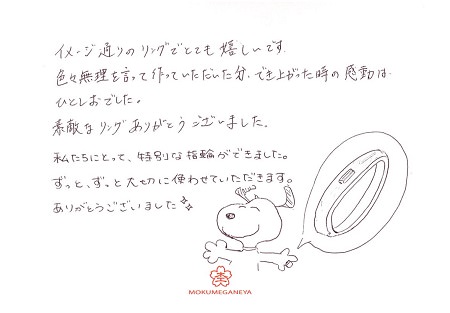 イメージ通りのリングでとても嬉しいです
色々無理を言って作っていただいた分、でき上がった時の感動は
ひとしおでした。
素敵なリングありがとうございました。
私たちにとって、特別な指輪ができました。
ずっと、ずっと大切に使わせていただきます。
ありがとうございました
MOKUMEGANEYA